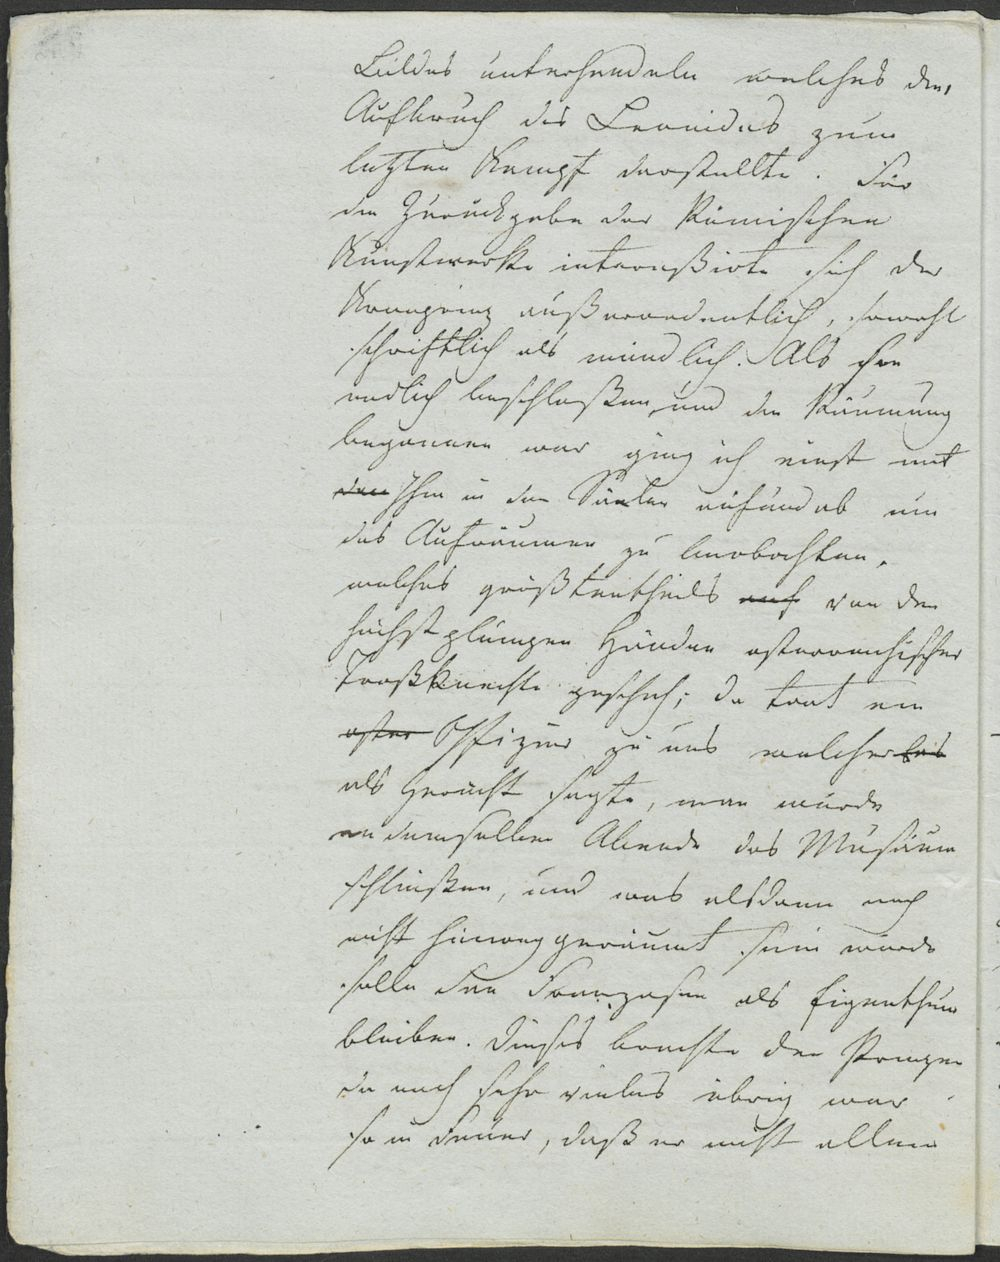 Bildes unterhandeln welches den
Aufbruch des Leonidas zum
letzten Kampf darstellte. Für
die Zurückgabe der Römischen
Kunstwerke intereßirte sich der
Kronprinz außerordentlich, sowohl
schriftlich als mündlich. Als sie
endlich beschloßen und die Räumung
begonnen war ging ich einst mit
den Ihm in den Säälen auf und ab um
das Aufräumen zu beobachten,
welches größtentheils auch von den
höchst plumpen Händen österreichischer
Troßknechte geschah; da trat ein
öster Offizier zu uns welcher das
als Gerücht sagte, man würde
an demselben Abende das Musäum
schließen, und was alsdann noch
nicht hinweggeräumt sein würde
solle den Franzosen als Eigenthum
bleiben. Dieses brachte den Prinzen
da noch sehr vieles übrig war
so in Feuer, daß er nicht allein